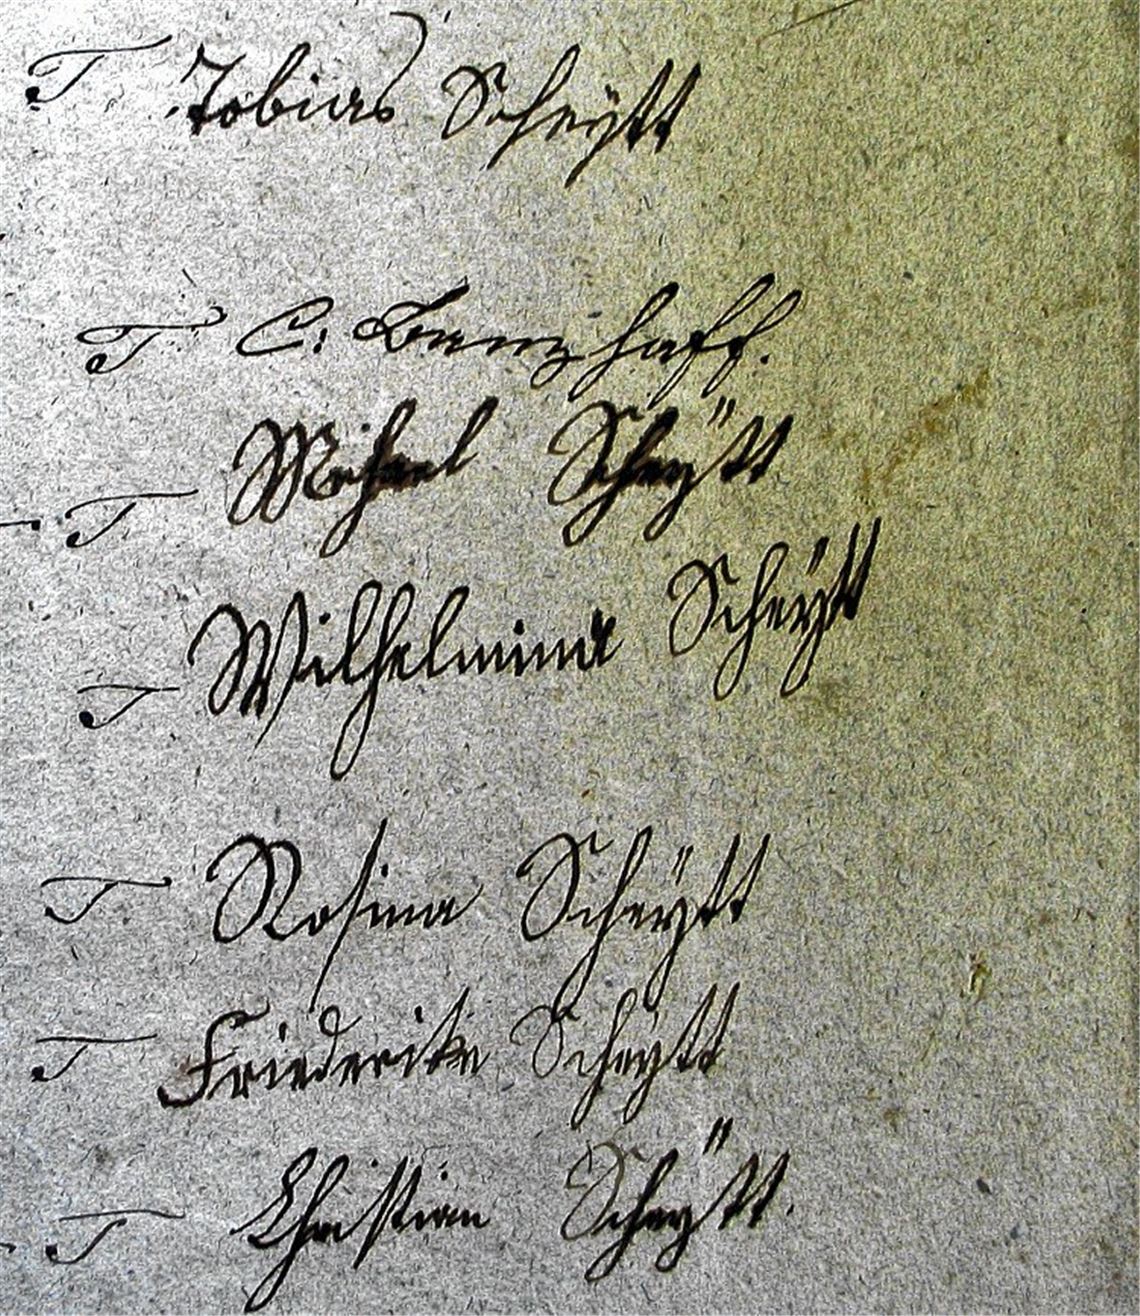 T Tobias Scheÿtt
T C: Benzhaff.
T Michael Scheÿtt
T Wilhelmina Scheÿtt
T Rosina Scheÿtt
T Friederike Scheÿtt
T Christian Scheÿtt.